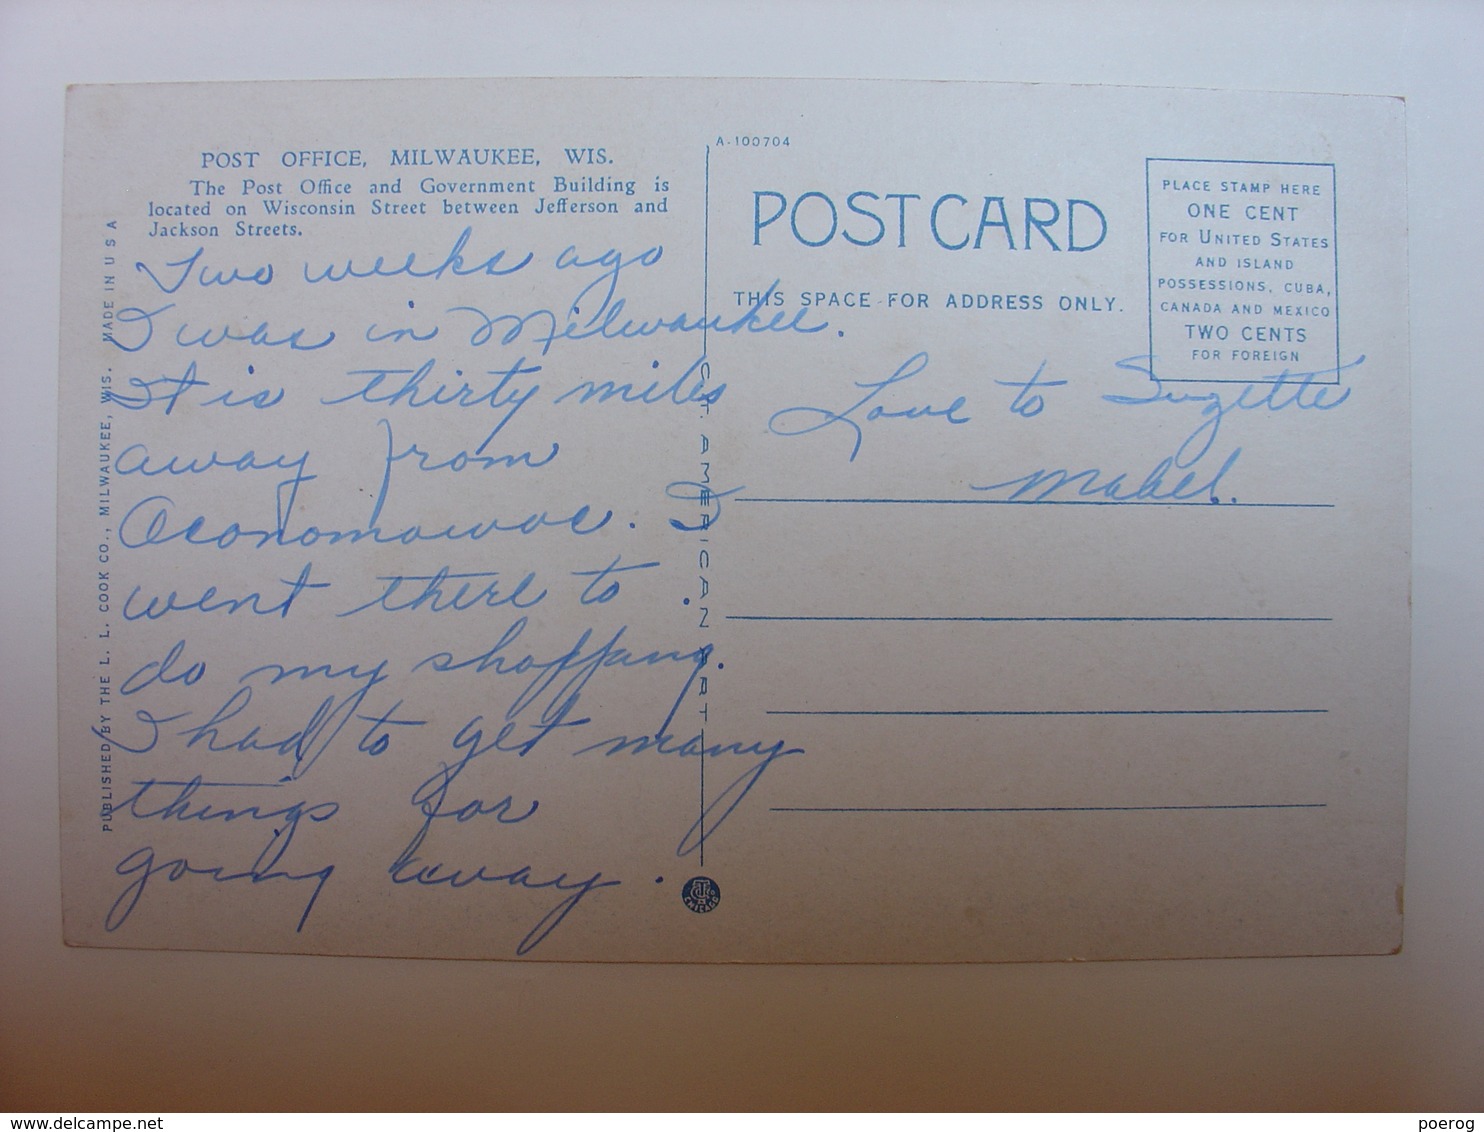 POST OFFICE, MILWAUKEE, WIS.
The Post Office and Government Building is
located on Wisconsin Street between Jefferson and
Jackson Streets.
Two weeks ago
I was in Milwaukee.
It is thirty miles
away from
Oconomowoc. I
went there to
do my shopping.
I had to get many
things for
going away.
PUBLISHED BY THE L. L. COOK CO., MILWAUKEE, WIS. MADE IN U S A
C. T. AMERICAN ART
CHICAGO
A-100704
POST CARD
THIS SPACE FOR ADDRESS ONLY.
PLACE STAMP HERE
ONE CENT
FOR UNITED STATES
AND ISLAND
POSSESSIONS, CUBA,
CANADA AND MEXICO
TWO CENTS
FOR FOREIGN
Love to Suzette
Mabel.
delcampe.net
poerog